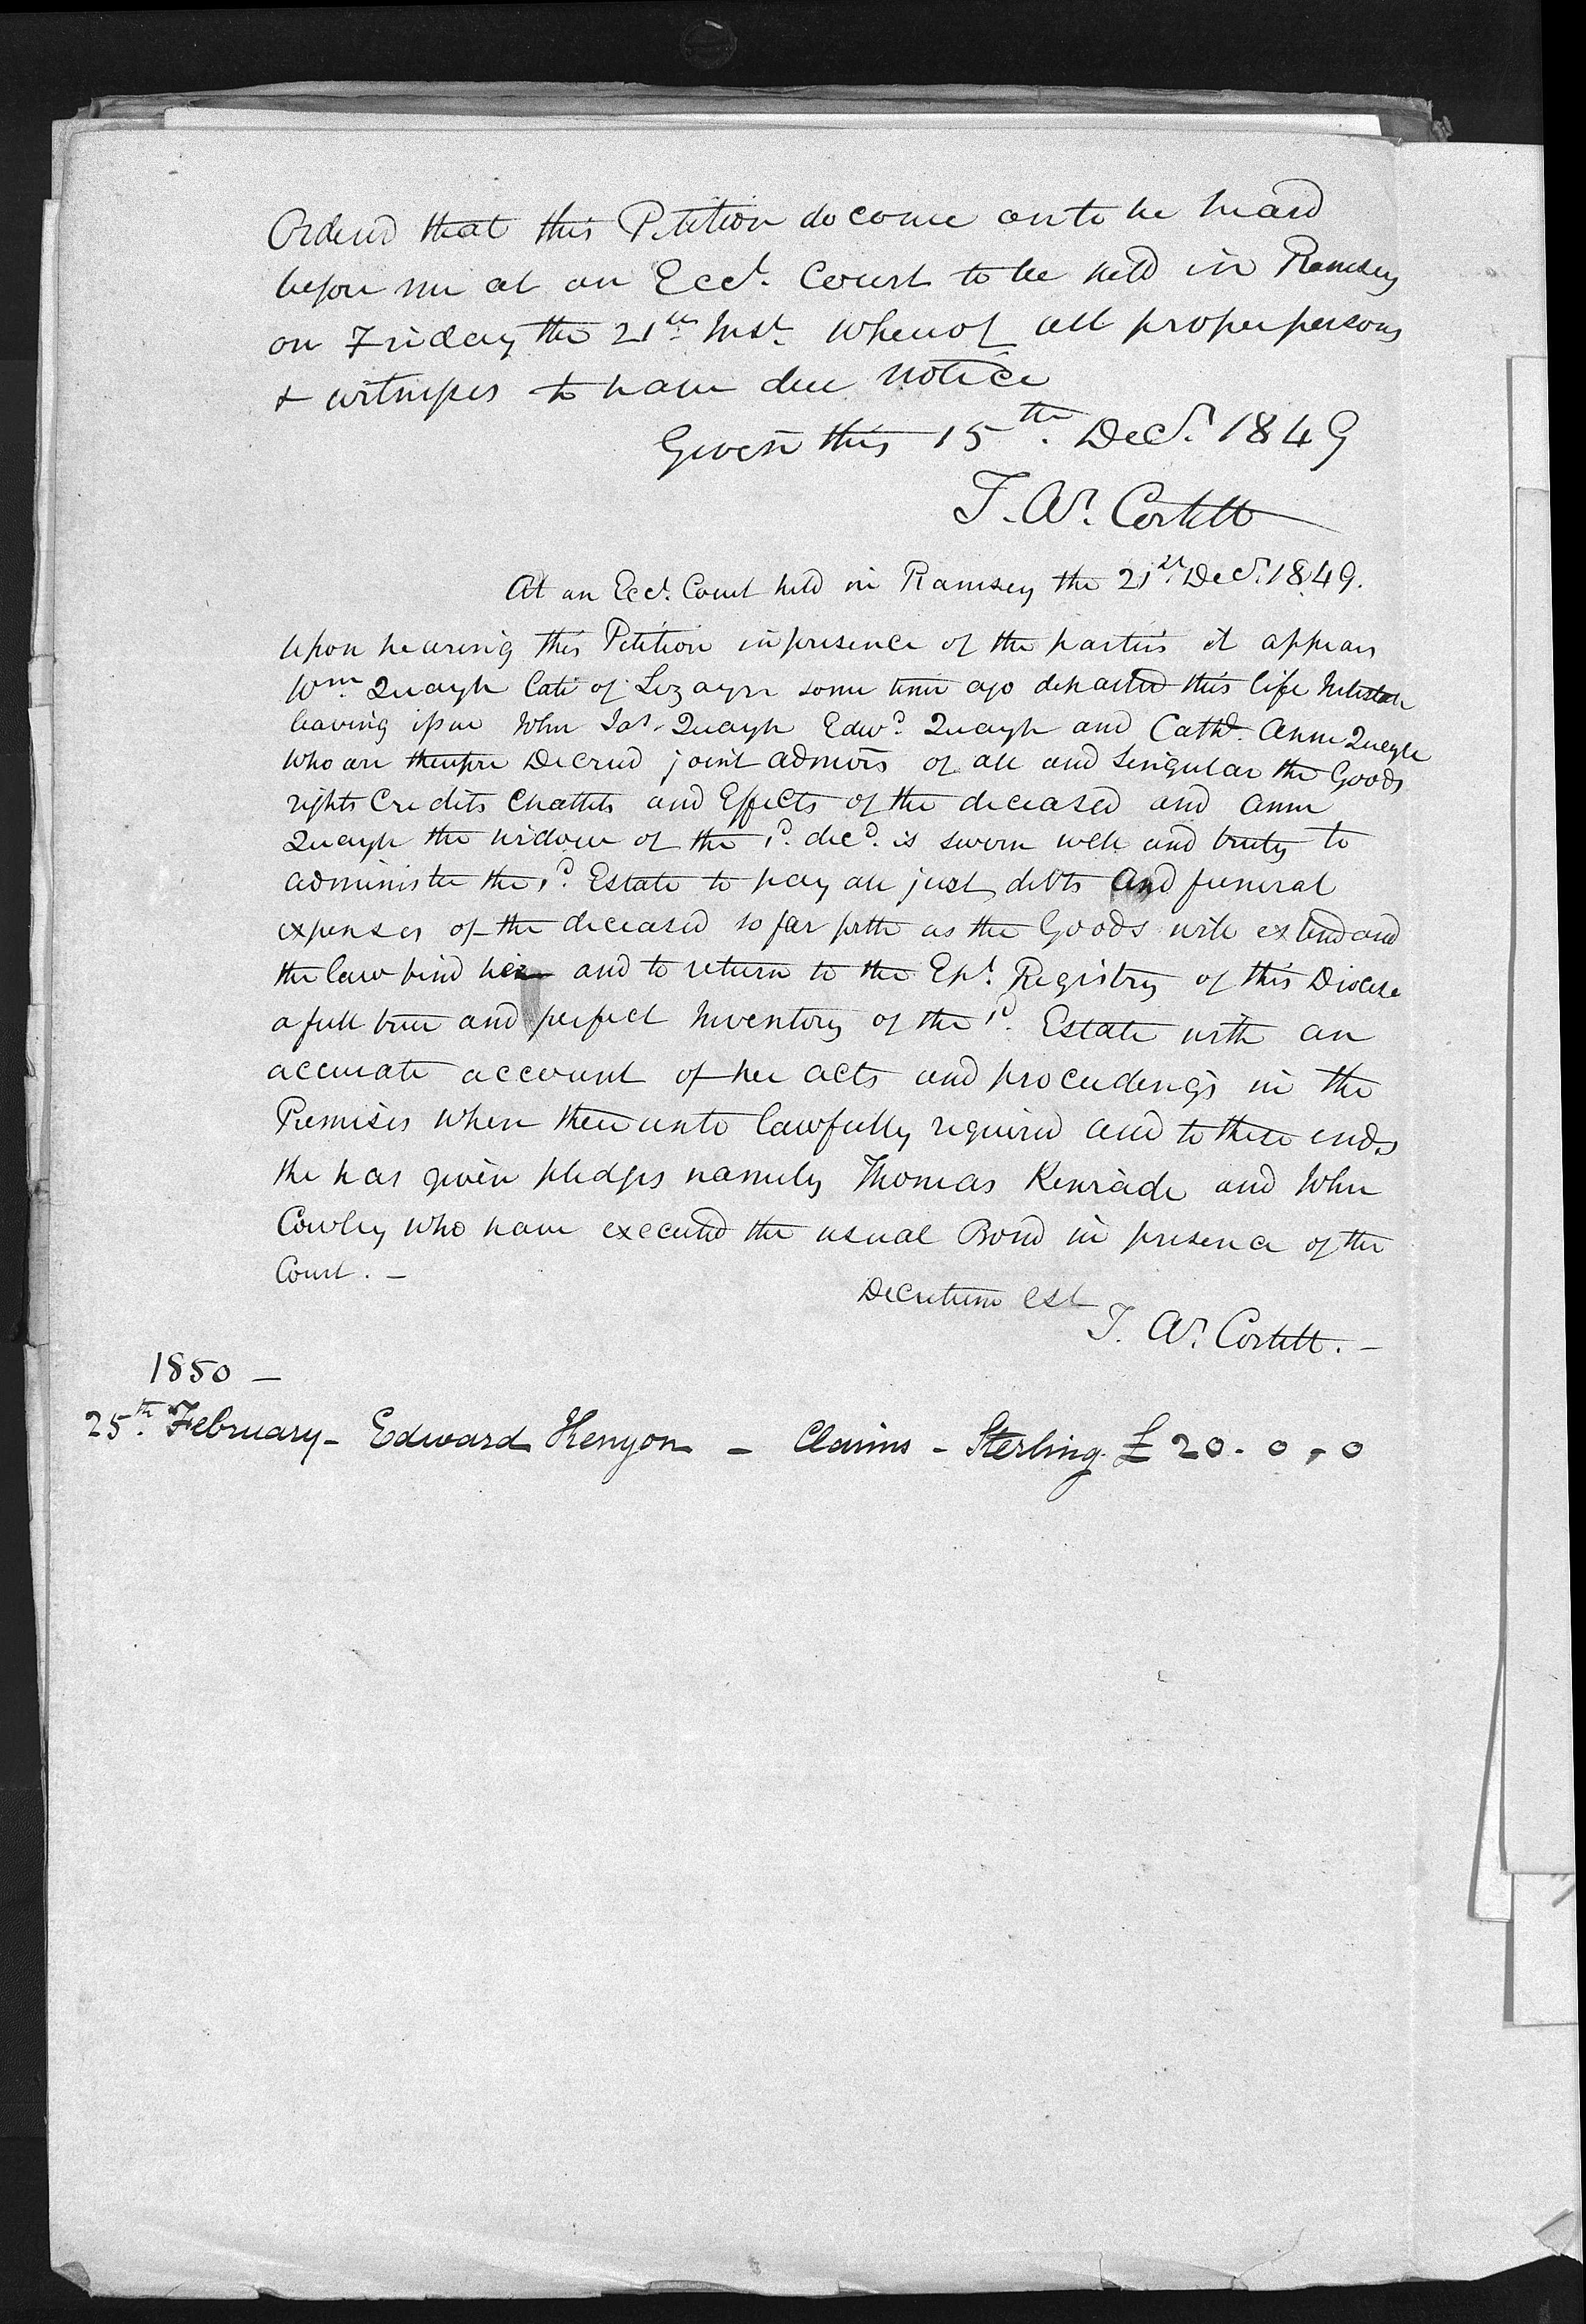 Ordered that this Petition do come on to be heard
before me at an Eccl. Court to be held in Ramsey
on Friday the 21st Inst. whereof all proper persons
& witnesses to have due notice
Given this 15th. Decr. 1849
T. Ar. Corlett
At an Eccl. Court held in Ramsey the 21st Decr. 1849.
Upon hearing this Petition in presence of the parties it appears
Wm. Quayle late of Lezayre some time ago departed this life Intestate
leaving issue John Jas. Quayle Edwd. Quayle and Cathe. Anne Quayle
who are therefore Decreed joint admors of all and singular the Goods
rights Credits Chattels and Effects of the deceased and Anne
Quayle the widow of the sd. decd. is sworn well and truly to
administer the sd. Estate to pay all just debts and funeral
expenses of the deceased so far forth as the Goods will extend and
the law bind her and to return to the Epl. Registry of this Diocese
a full true and perfect Inventory of the sd. Estate with an
accurate account of her acts and proceedings in the
Premises when thereunto lawfully required and to these ends
she has given pledges namely Thomas Kinrade and John
Cowley who have executed the usual Bond in presence of the
Court. -
Decretum est
T. Ar. Corlett. -
1850 -
25th. February - Edward Kenyon - Claims - Sterling £ 20 - 0 , 0